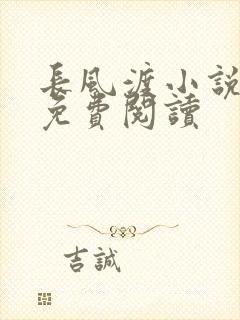 長風渡小說
免費閱讀
吉誠